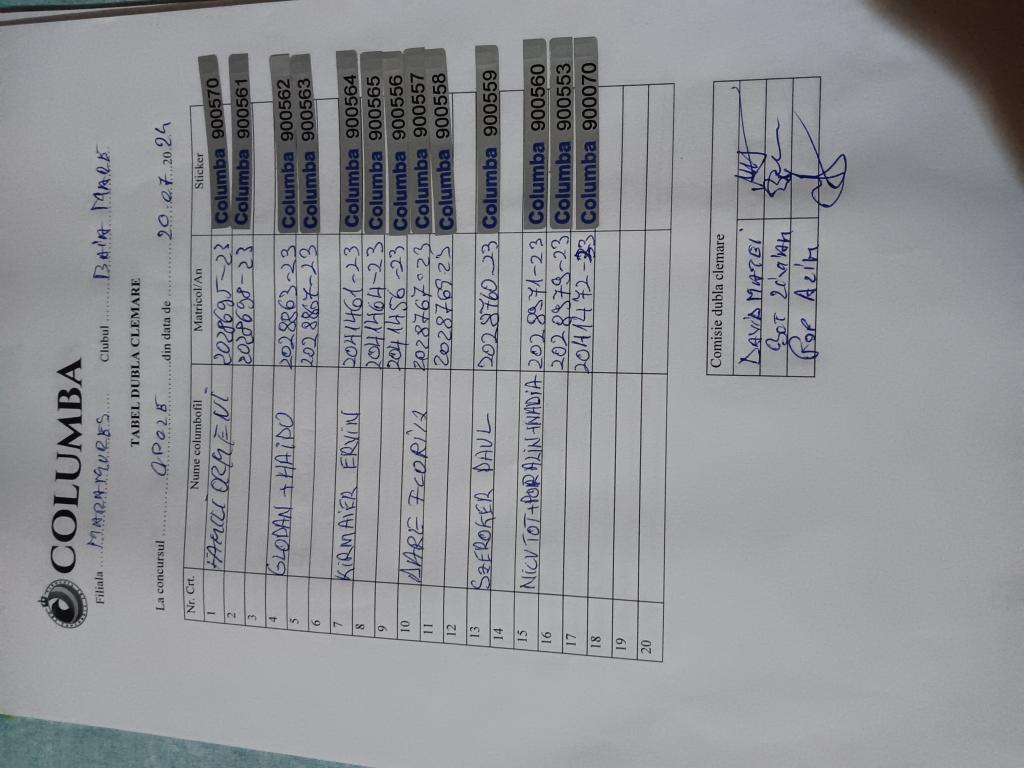 COLUMBA
Filiala ....MARAMUREȘ..... Clubul ........BAIA MARE
TABEL DUBLA CLEMARE
La concursul ..........OPOLE..........din data de ............20.07.2024
Nr. Crt. Nume columbofil Matricol/An Sticker
1 2028695-23 Columba 900570
2 2028698-23 Columba 900561
3
4 GLODAN + HAIDO 2028863-23 Columba 900562
5 2028867-23 Columba 900563
6
7 KIRMAIER ERVIN 2041461-23 Columba 900564
8 2041464-23 Columba 900565
9 2041456-23 Columba 900556
10 MARE FLORIN 2028767-23 Columba 900557
11 2028769-23 Columba 900558
12
13 SZEROKER PAUL 2028760-23 Columba 900559
14
15 NICU TOT+HORALIN+NADIA 2028971-23 Columba 900560
16 2028979-23 Columba 900553
17 2041472-23 Columba 900070
18
19
20
Comisie dubla clemare
DAVID MATEI
POP ALIN